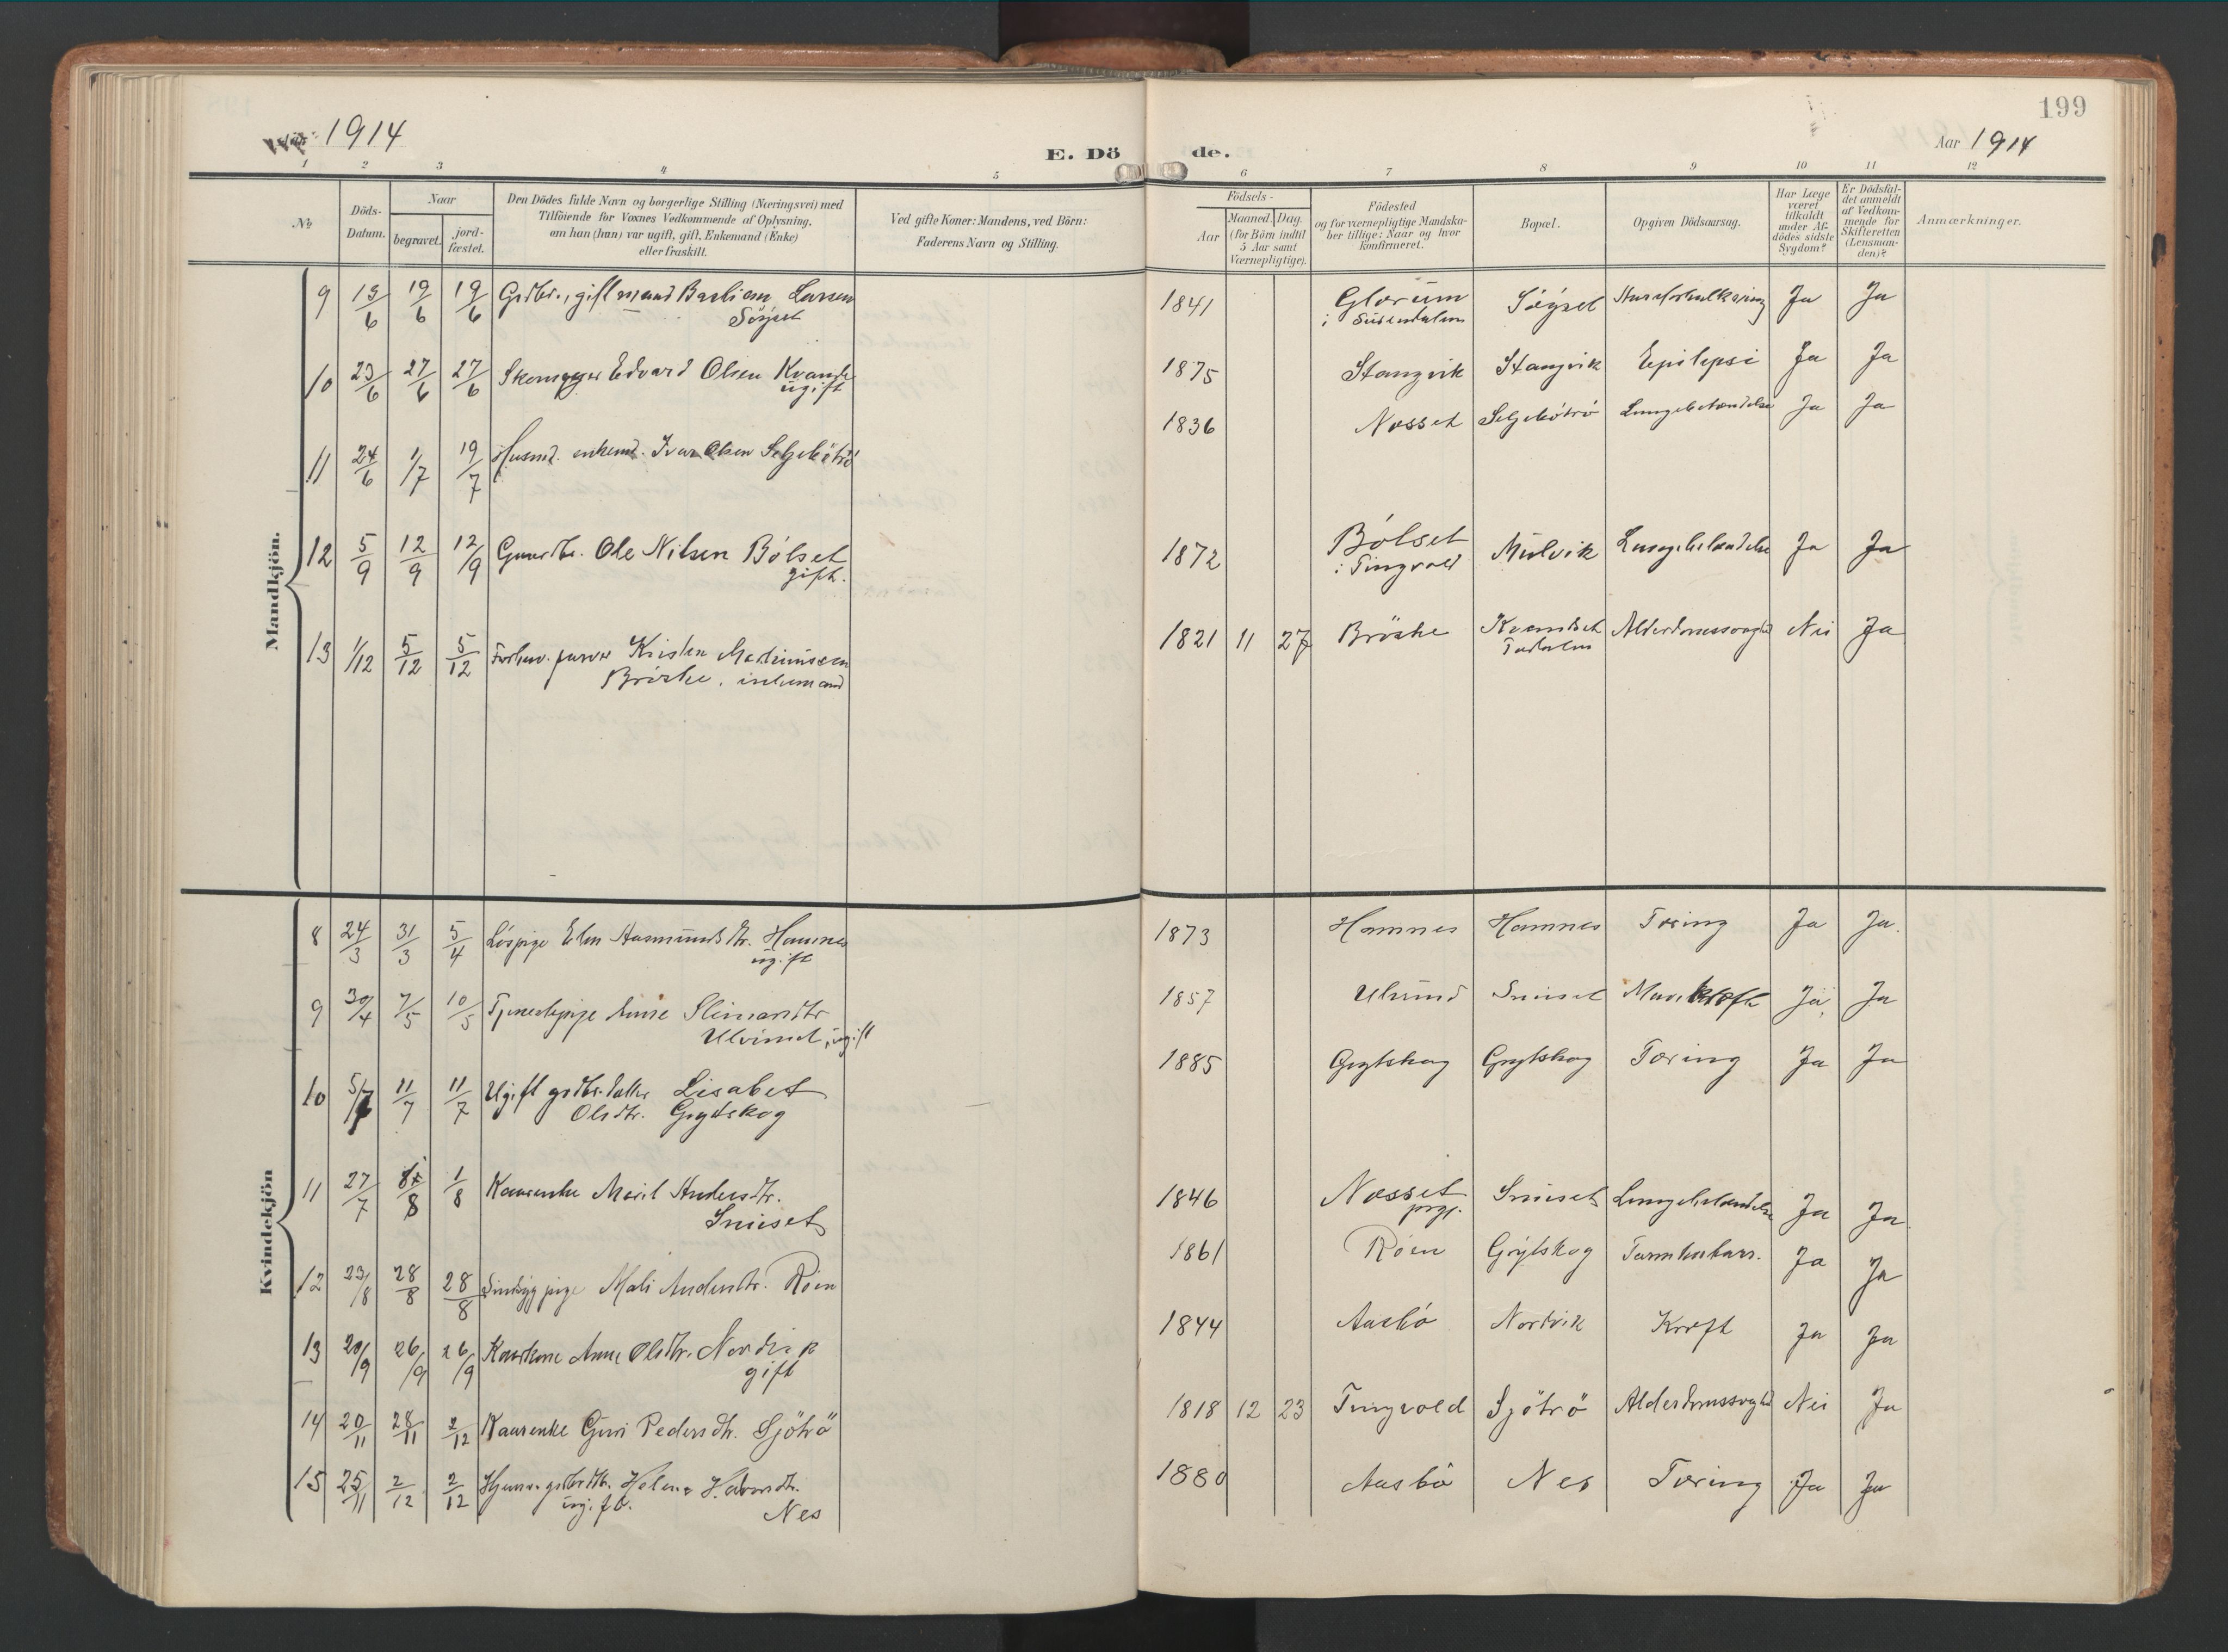 199
Aar 1914
Aar 1914
E. Döde.
1 2 3 4 5 6 7 8 9 10 11 12
№
Döds-Datum.
Naar
begravet.
jord-fæstet.
Den Dödes fulde Navn og borgerlige Stilling (Næringsvei) med
Tilföiende for Voxnes Vedkommende af Oplysning.
om han (hun) var ugift, gift, Enkemand (Enke)
eller fraskilt.
Ved gifte Koner: Mandens, ved Börn:
Faderens Navn og Stilling.
Födsels-
Aar
Maaned. Dag.
(for Börn indtil
5 Aar samt
Værnepligtige).
Födested
og for værnepligtige Mandska-
ber tillige: Naar og hvor
konfirmeret.
Bopæl.
Opgiven Dödsaarsag.
Har Læge
været
tilkaldt
under Af-
dödes sidste
Sygdom?
Er Dödsfal-
det anmeldt
af Vedkom-
mende for
Skifteretten
(Lensman-
den)?
Anmærkninger.
Mandkjön.
9 13/6 19/6 19/6 Grdbr., gift mand Bastian Larsen 1841 Glærum Ja Ja
i Surendalen
10 23/6 27/6 27/6 Skomager Edvard Olsen Kvande 1875 Stangvik Stangvik Epilepsi Ja Ja
ugift
11 24/6 1/7 19/7 Husmd. enkemd. Ivar Olsen Seljebötrö 1836 Nesset Seljebötrö Lungebetændelse Ja Ja
12 5/9 12/9 12/9 Gaardbr. Ole Nilsen Bölset 1872 Bölset Mulvik Lungebetændelse Ja Ja
gift. i Tingvold
13 1/12 5/12 5/12 Forhenv. farver Kristen Martinussen 1821 11 27 Bröske Kvandset Alderdomssvaghed Nei Ja
Bröske. enkemand Todalen
Kvindekjön
8 24/3 31/3 5/4 Löspige Elen Aasmundsdtr. Hamnes 1873 Hamnes Hamnes Tæring Ja Ja.
ugift
9 30/4 7/5 10/5 Tjenestepige Anne 1857 Ulvund Snuset Mavekræft Ja Ja
Ulvund, ugift
10 5/7 11/7 11/7 Ugift grdbr.datter Lisabet 1885 Grytskog Grytskog Tæring Ja Ja
Olsdtr. Grytskog
11 27/7 1/8 Kaarenke Marit Andersdtr. 1846 Nesset Snuset Lungebetændelse Ja Ja
Snuset prgj.
12 23/8 28/8 28/8 Sindsyg pige Mali Andersdtr. Röen 1861 Röen Grytskog Tarmkatarr. Ja Ja
13 20/9 26/9 26/9 Kaarkone Anne Olsdtr. Nordvik 1844 Aasbö Nordvik Kræft Ja Ja
gift
14 20/11 28/11 2/12 Kaarenke Guri Pedersdtr. Sjötrö 1818 12 23 Tingvold Sjötrö Alderdomssvaghed Nei Ja
15 25/11 2/12 2/12 Hjemv. grdbrdtr. Helene 1880 Aasbö Nes Tæring Ja Ja
ugift. Nes